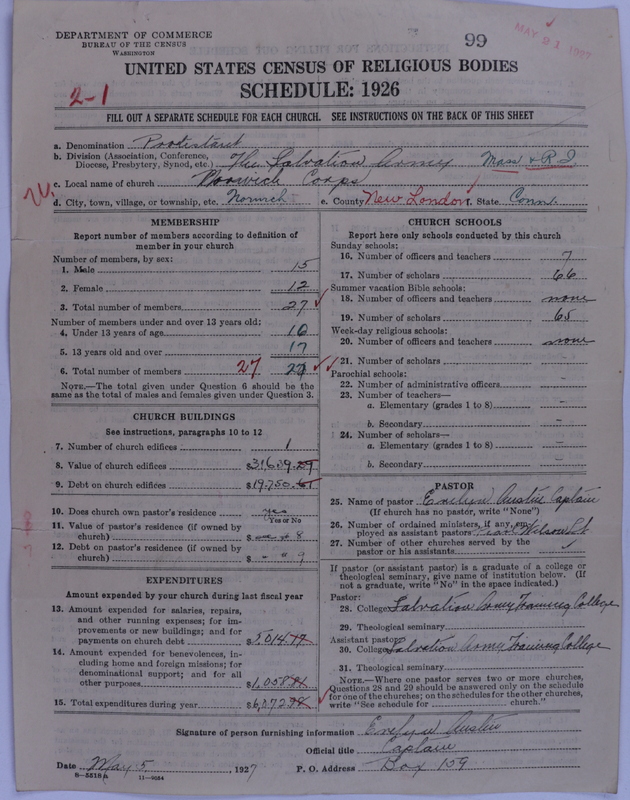 DEPARTMENT OF COMMERCE
BUREAU OF THE CENSUS
WASHINGTON
99
MAY 23 1927
UNITED STATES CENSUS OF RELIGIOUS BODIES
SCHEDULE: 1926
2-1
FILL OUT A SEPARATE SCHEDULE FOR EACH CHURCH. SEE INSTRUCTIONS ON THE BACK OF THIS SHEET
a. Denomination Protestant
b. Division (Association, Conference, Diocese, Presbytery, Synod, etc.) The Salvation Army Mass & R I
c. Local name of church Norwich Corps
d. City, town, village, or township, etc. Norwich e. County New London f. State Conn.
MEMBERSHIP
Report number of members according to definition of member in your church
Number of members, by sex:
1. Male 15
2. Female 12
3. Total number of members 27
Number of members under and over 13 years old:
4. Under 13 years of age 10
5. 13 years old and over 17
6. Total number of members 27 27
NOTE.—The total given under Question 6 should be the same as the total of males and females given under Question 3.
CHURCH BUILDINGS
See instructions, paragraphs 10 to 12
7. Number of church edifices 1
8. Value of church edifices $31639.
9. Debt on church edifices $19750.
10. Does church own pastor's residence yes
Yes or No
11. Value of pastor's residence (if owned by church) $ 8
12. Debt on pastor's residence (if owned by church) $ " 9
EXPENDITURES
Amount expended by your church during last fiscal year
13. Amount expended for salaries, repairs, and other running expenses; for improvements or new buildings; and for payments on church debt $5,014
14. Amount expended for benevolences, including home and foreign missions; for denominational support; and for all other purposes $1,058
15. Total expenditures during year $6,072
CHURCH SCHOOLS
Report here only schools conducted by this church
Sunday schools:
16. Number of officers and teachers 7
17. Number of scholars 66
Summer vacation Bible schools:
18. Number of officers and teachers none
19. Number of scholars 65
Week-day religious schools:
20. Number of officers and teachers none
21. Number of scholars -
Parochial schools:
22. Number of administrative officers -
23. Number of teachers—
a. Elementary (grades 1 to 8) -
b. Secondary -
24. Number of scholars—
a. Elementary (grades 1 to 8) -
b. Secondary -
PASTOR
25. Name of pastor Evelyn Austin Captain
(If church has no pastor, write "None")
26. Number of ordained ministers, if any, employed as assistant pastors Wilson Lt.
27. Number of other churches served by the pastor or his assistants
If pastor (or assistant pastor) is a graduate of a college or theological seminary, give name of institution below. (If not a graduate, write "No" in the space indicated.)
Pastor:
28. College Salvation Army Training College
29. Theological seminary
Assistant pastor:
30. College Salvation Army Training College
31. Theological seminary
NOTE.—Where one pastor serves two or more churches, Questions 28 and 29 should be answered only on the schedule for one of the churches; on the schedules for the other churches, write "See schedule for church."
Signature of person furnishing information Evelyn Austin
Official title Captain
Date May 5, 1927 P. O. Address Box 159
8-5518a 11-9054